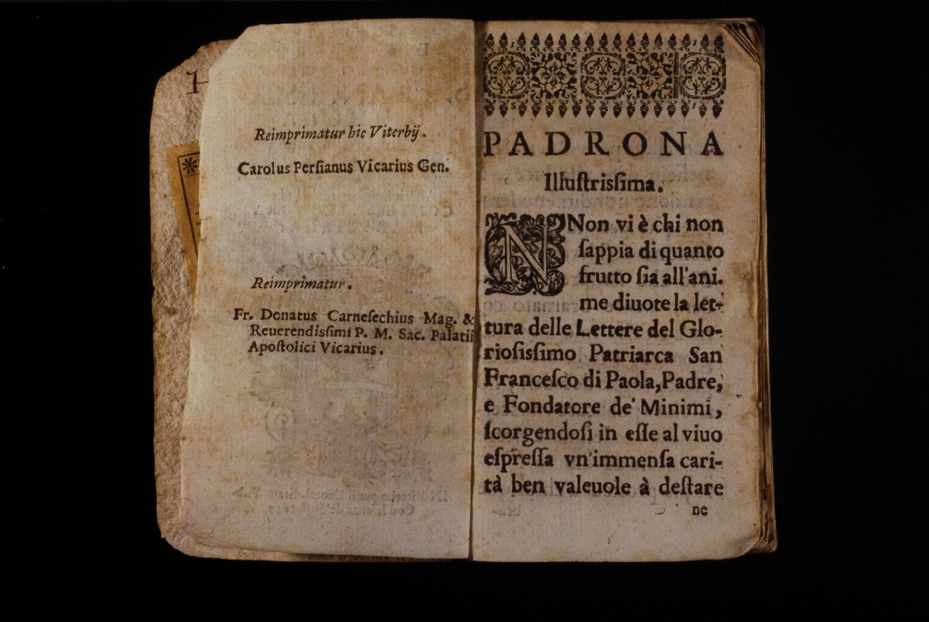 Reimprimatur hic Viterbij.
Carolus Persianus Vicarius Gen.
Reimprimatur.
Fr. Donatus Carnesechius Mag. &
Reuerendissimi P. M. Sac. Palatii
Apostolici Vicarius.
PADRONA
Illustrissima.
NNon vi è chi non
sappia di quanto
frutto sia all'ani.
me diuote la let-
tura delle Lettere del Glo-
riosissimo Patriarca San
Francesco di Paola, Padre,
e Fondatore de' Minimi,
scorgendosi in esse al viuo
espressa vn'immensa cari-
tà ben valeuole à destare
ne